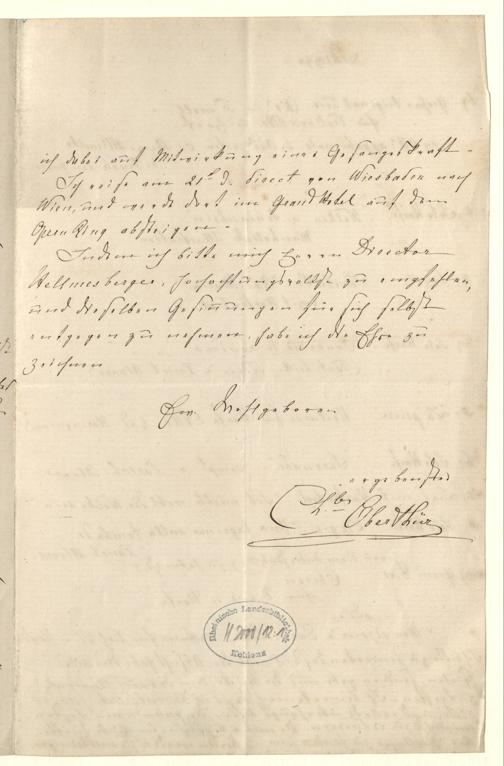 ich dabei auf Mitwirkung eines Gesangskraft.
Ich reise am 21t d. direct von Wiesbaden nach
Wien, und werde dort im Grand Hotel auf dem
Opern Ring absteigen.
Indem ich bitte mich Herrn Director
Hellmesberger, hochachtungsvollst zu empfehlen,
und dieselben Gesinnungen für sich selbst
entgegen zu nehmen, habe ich die Ehre zu
zeichnen
Ew. Wohlgeboren
ergebenster
Chles Oberthür
Rheinische Landesbibliothek
H 2001/12
Koblenz